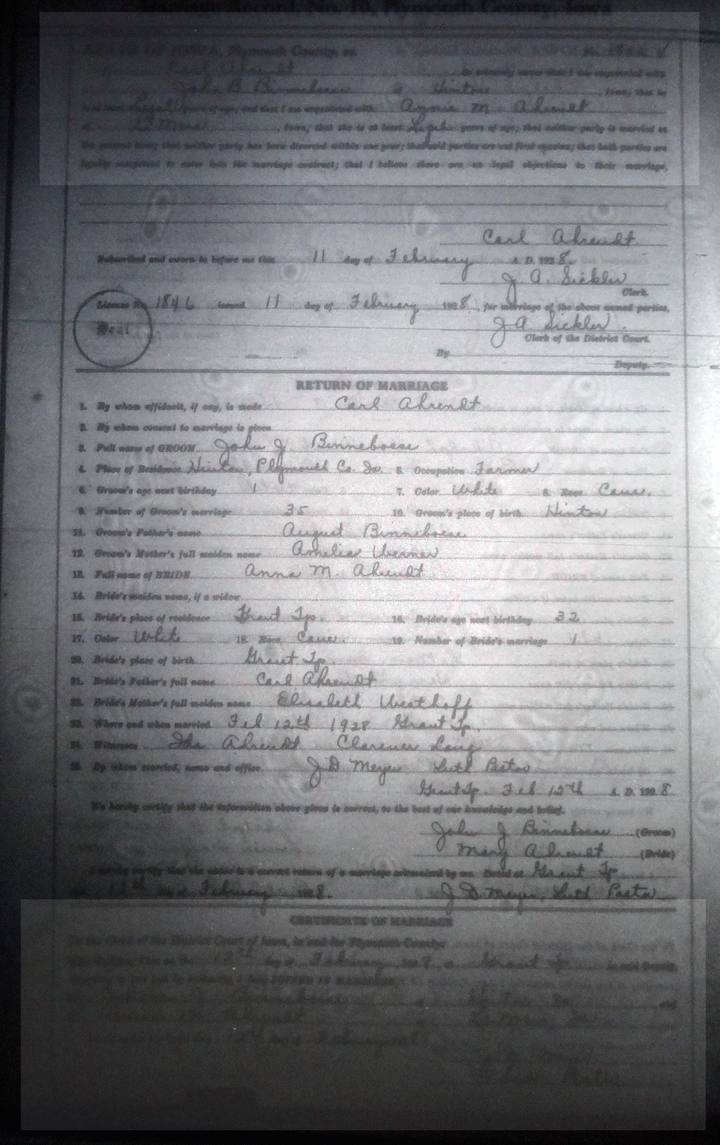 Marriage Record, No. 10, Plymouth County, Iowa
STATE OF IOWA, Plymouth County, ss.
Carl Ahrendt
John B Binneboese of Hinton, Iowa, that he
Legal years of age, and that I am acquainted with Annie M. Ahrendt
of Le Mars, Iowa; that she is at least Legal years of age; that neither party is married at
the present time; that neither party has been divorced within one year; that said parties are not first cousins; that both parties are
legally competent to enter into the marriage contract; that I believe there are no legal objections to their marriage,
Carl Ahrendt
Subscribed and sworn to before me this 11 day of February A. D. 1928.
J. A. Sickler
Clerk.
License No. 1846 issued 11 day of February 1928, for marriage of the above named parties.
Seal
J A Sickler.
Clerk of the District Court.
By
Deputy.
RETURN OF MARRIAGE
1. By whom affidavit, if any, is made Carl Ahrendt
2. By whom consent to marriage is given
3. Full name of GROOM John J Binneboese
4. Place of Residence Hinton, Plymouth Co. Io. 5. Occupation Farmer
6. Groom's age next birthday 1 7. Color White 8. Race Cauc.
9. Number of Groom's marriage 35 10. Groom's place of birth Hinton
11. Groom's Father's name August Binneboese
12. Groom's Mother's full maiden name Amelia Werner
13. Full name of BRIDE Anna M. Ahrendt
14. Bride's maiden name, if a widow
15. Bride's place of residence Grant Tp. 16. Bride's age next birthday 32
17. Color White 18. Race Cauc. 19. Number of Bride's marriage 1
20. Bride's place of birth Grant Tp.
21. Bride's Father's full name Carl Ahrendt
22. Bride's Mother's full maiden name Elisabeth Westhoff
23. Where and when married Feb 12th 1928 Grant Tp.
24. Witnesses Ida Ahrendt Clarence Lang
25. By whom married, name and office J D Meyer Luth Pastor
Grant Tp. Feb 12th A. D. 1928
We hereby certify that the information above given is correct, to the best of our knowledge and belief.
John J Binneboese (Groom)
Mary Ahrendt (Bride)
I hereby certify that the above is a correct return of a marriage solemnized by me. Dated at Grant Tp.
12th day of February 1928. J D Meyer, Luth Pastor
CERTIFICATE OF MARRIAGE
To the Clerk of the District Court of Iowa, in and for Plymouth County:
12th day of February 1928 at Grant Tp.
Binneboese of Hinton
Ahrendt of Le Mars
February